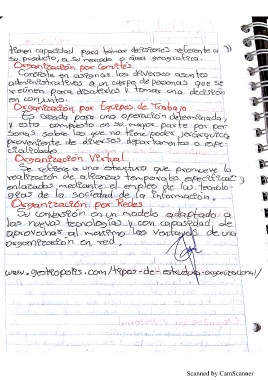 tienen capacidad para tomar decisiones referente a
su producto, a su mercado o área geográfica.
Organización por Comités
Consiste en asignar los diversos asuntos
administrativos a un cuerpo de personas que se
reúnen para debatirlos y tomar una decisión
en conjunto.
Organización por Equipos de Trabajo
Es creada para una operación determinada,
y esta compuesto en su mayor parte por per
sonas sobre las que no tiene poder jerárquico
proveniente de diversos departamentos o espe-
cialidades.
Organización Virtual
Se refiere a una estructura que promueve la
realización de alianzas temporales específicas
enlazadas mediante el empleo de las tecnolo
gías de la sociedad de la información.
Organización por Redes
Su conversión en un modelo adaptado a
las nuevas tecnologías y con capacidad de
aprovechar al máximo las ventajas de una
organización en red.
www.gestropolis.com/tipos-de-estructura-organizacional/
Scanned by CamScanner